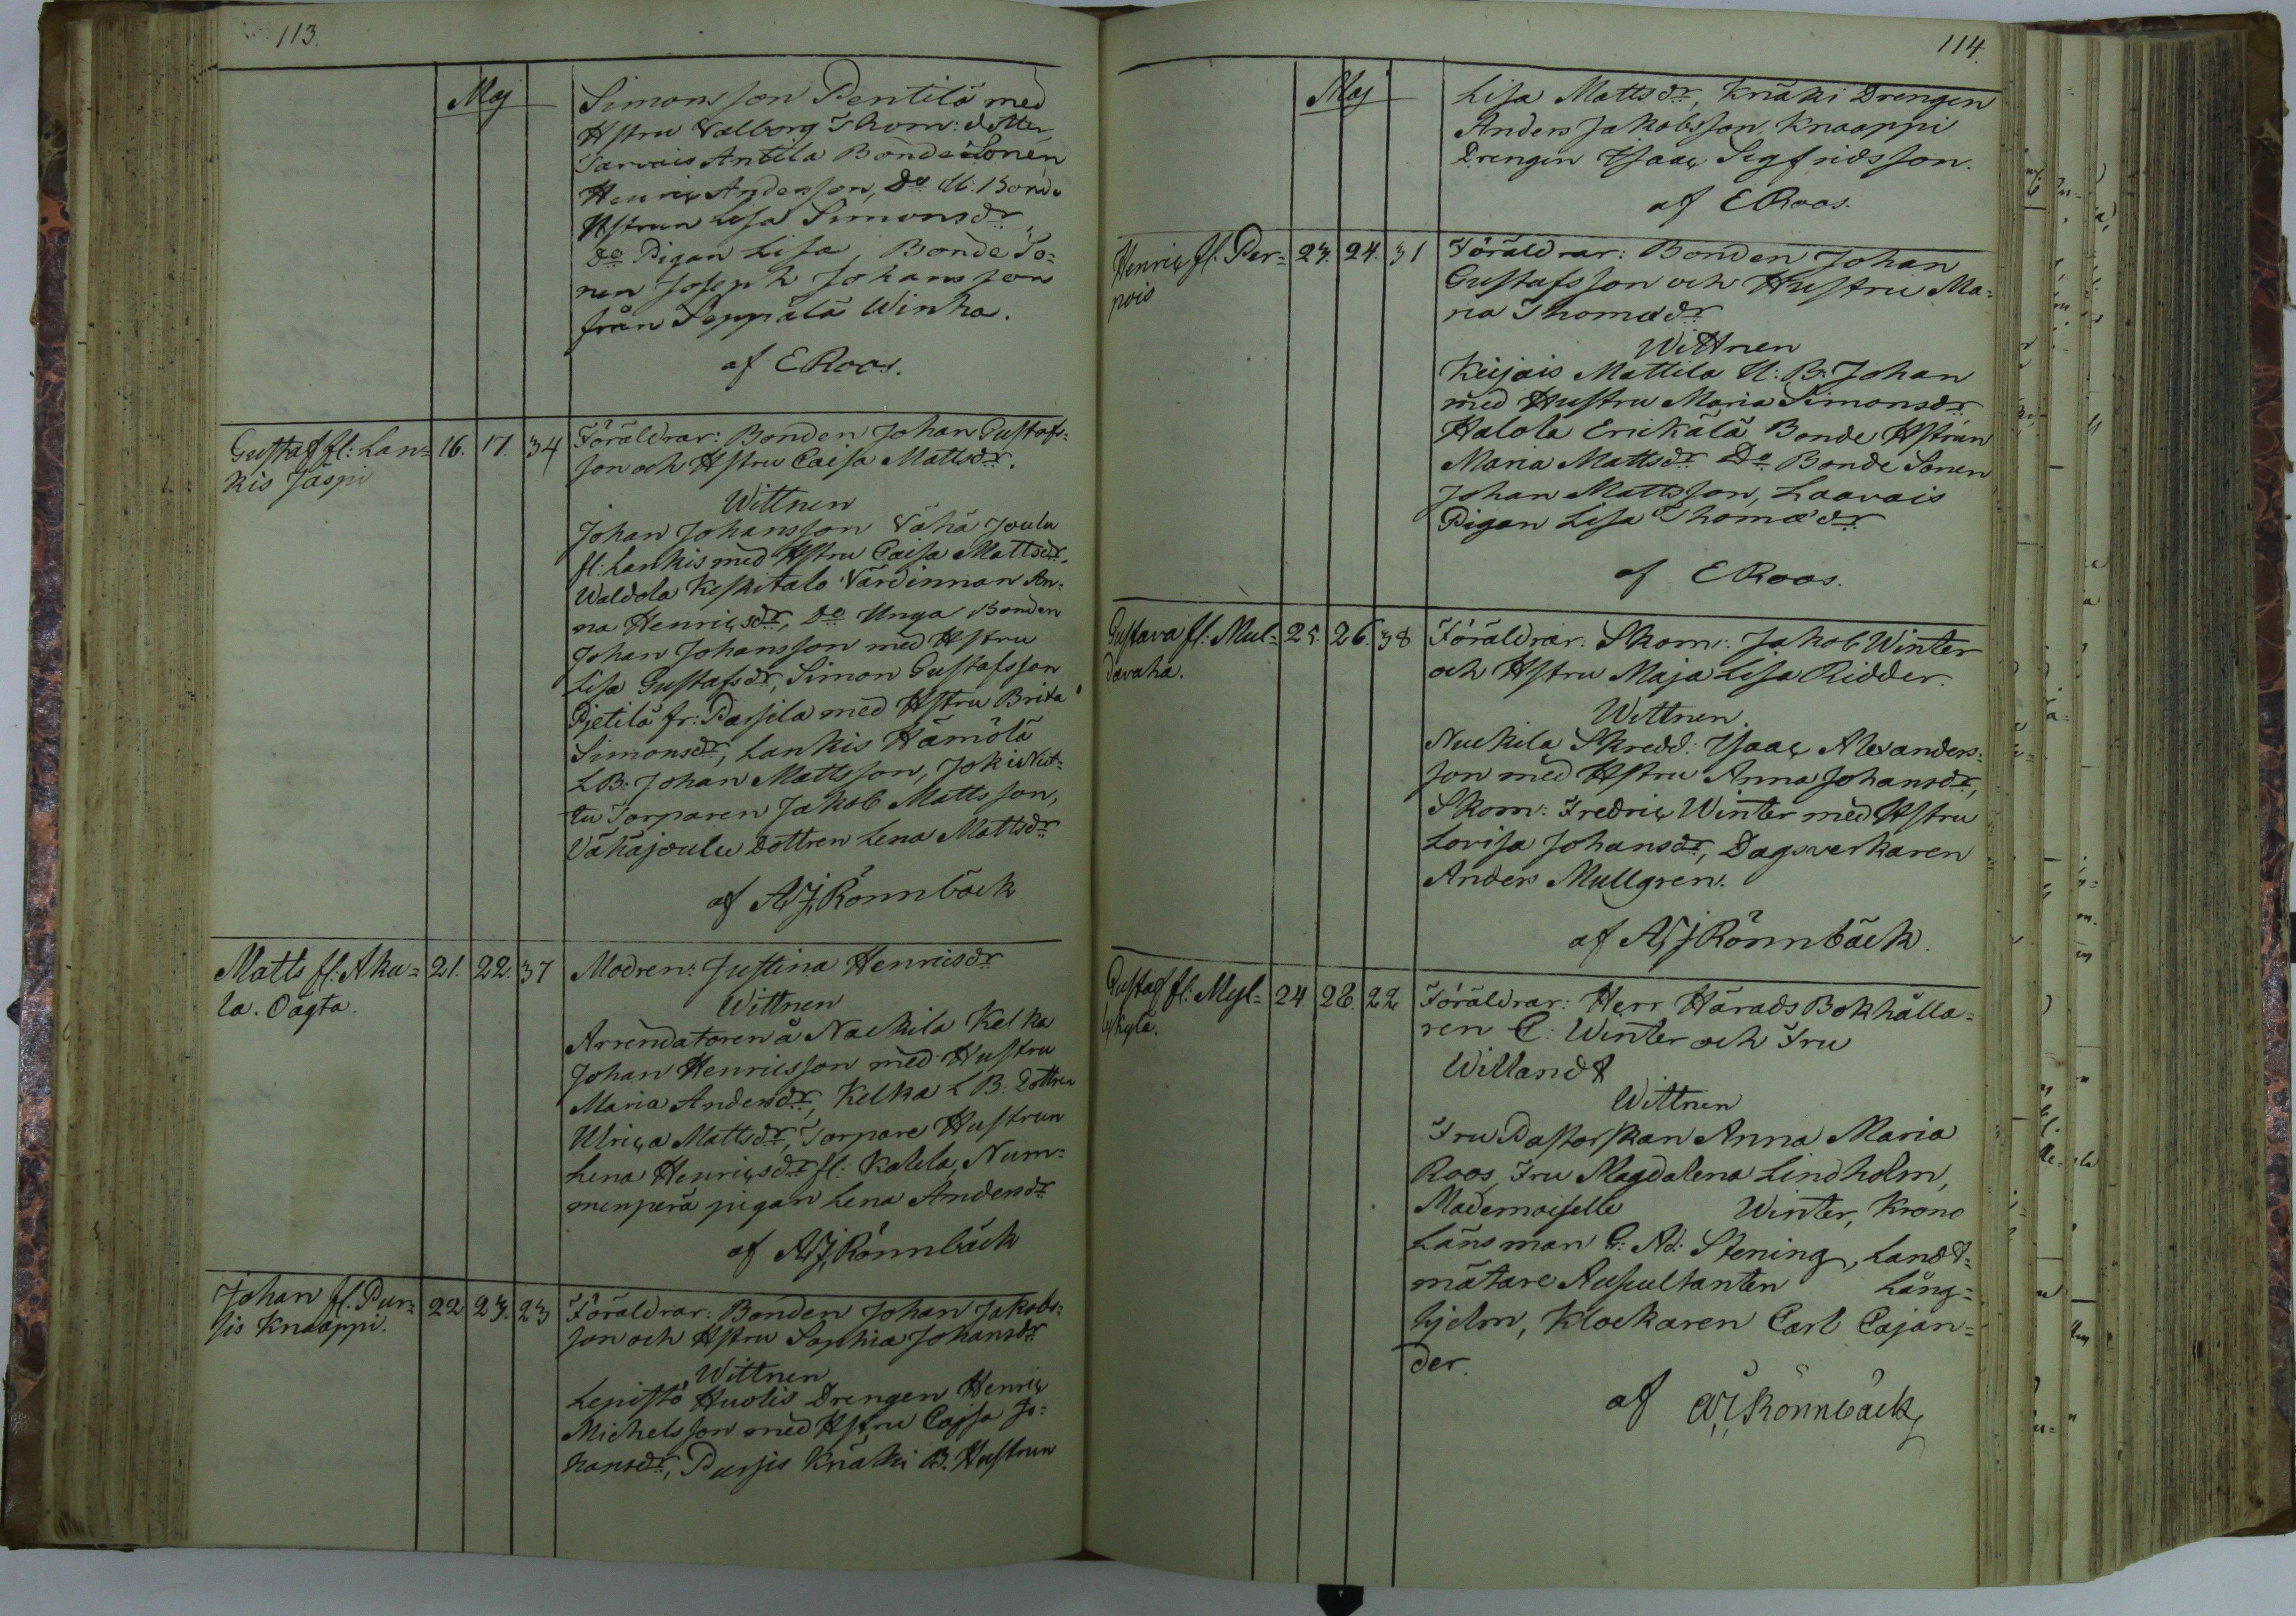 113.
Maj
Simonsson Pentilä med
Hstru Valborg Thom: dotter
Sarvais Antila Bonde Sonen
Henric Andersson, Do U: Bonde
Hstrun Lisa Simonsdr
do Pigan Lisa, Bonde So=
nen Joseph Johansson
från Seppälä Winha.
af E Roos.
Gustaf fl: Lan= 16. 17. 34 Föräldrar: Bonden Johan Gustafs=
kis Jäspi
son och Hstru Caisa Mattsdr.
Wittnen
Johan Johansson Vähä Joulu
fl: Lankis med Hstru Caisa Mattsdr.
Waldola Keskitalo Värdinnan An=
na Henricsdr, Do Unga Bonden
Johan Johansson med Hstru
Lisa Gustafsdr, Simon Gustafsson
Pjetilä fr: Passila med Hstru Brita
Simonsdr, Lankis Hämölä
L B: Johan Mattsson, Joki Nit=
tu Torparen Jakob Mattsson,
Vähäjoulu Dottren Lena Mattsdr
af A J Rönnbäck
Matts fl: Aka= 21. 22. 37 Modren: Justina Henricsdr
la. Oägta.
Wittnen
Arrendatoren å Naekila Kelka
Johan Henricsson med Hustru
Maria Andersdr, Kelka L B: Dottren
Ulrica Mattsdr, Torpare Hustrun
Lena Henricsdr fl: Kalela, Num=
menperä pigan Lena Andersdr
af A J Rönnbäck
Johan fl. Pur= 22 23. 23 Föräldrar: Bonden Johan Jakobs=
sis Knaappi.
son och Hstru Sophia Johansdr
Wittnen
Lepistö Huolis Drengen Henric
Michelsson med Hstru Cajsa Jo=
hansdr, Purssis Knäki B. Hustrun
114.
Maj
Lisa Mattsdr, Knäki Drengen
Anders Jakobsson, Knaappi
Drengen Isaac Sigfridsson.
af E Roos.
Henric fl. Per= 23. 24. 31 Föräldrar: Bonden Johan
nois
Gustafsson och Hustru Ma=
ria Thomædr
Wittnen
Keijais Mattila U: B: Johan
med Hustru Maria Simonsdr
Halola Erickälä Bonde Hstrun
Maria Mattsdr Do Bonde Sonen
Johan Mattsson, Laavais
Pigan Lisa Thomædr
af E Roos.
Gustava fl: Mul= 25. 26. 38 Föräldrar: Skom: Jakob Winter
davaha.
och Hstru Maja Lisa Ridder.
Wittnen
Nuckila Skredd: Isaac Alexanders=
son med Hstru Anna Johansdr,
Skom: Fredric Winter med Hstru
Lovisa Johansdr, Dagsverkaren
Anders Mullgren.
af A J Rönnbäck.
Gustaf fl: Myl= 24 28. 22 Föräldrar: Herr Härads Bokhålla=
lykylä.
ren C: Winter och Fru
Willandt
Wittnen
Fru Pastorskan Anna Maria
Roos, Fru Magdalena Lindholm,
Mademoiselle Winter, Krono
Länsman G: Ad: Stening, Landt=
mätare Auscultanten Lång=
hjelm, Klockaren Carl Cajan=
der.
af A J Rönnbäck